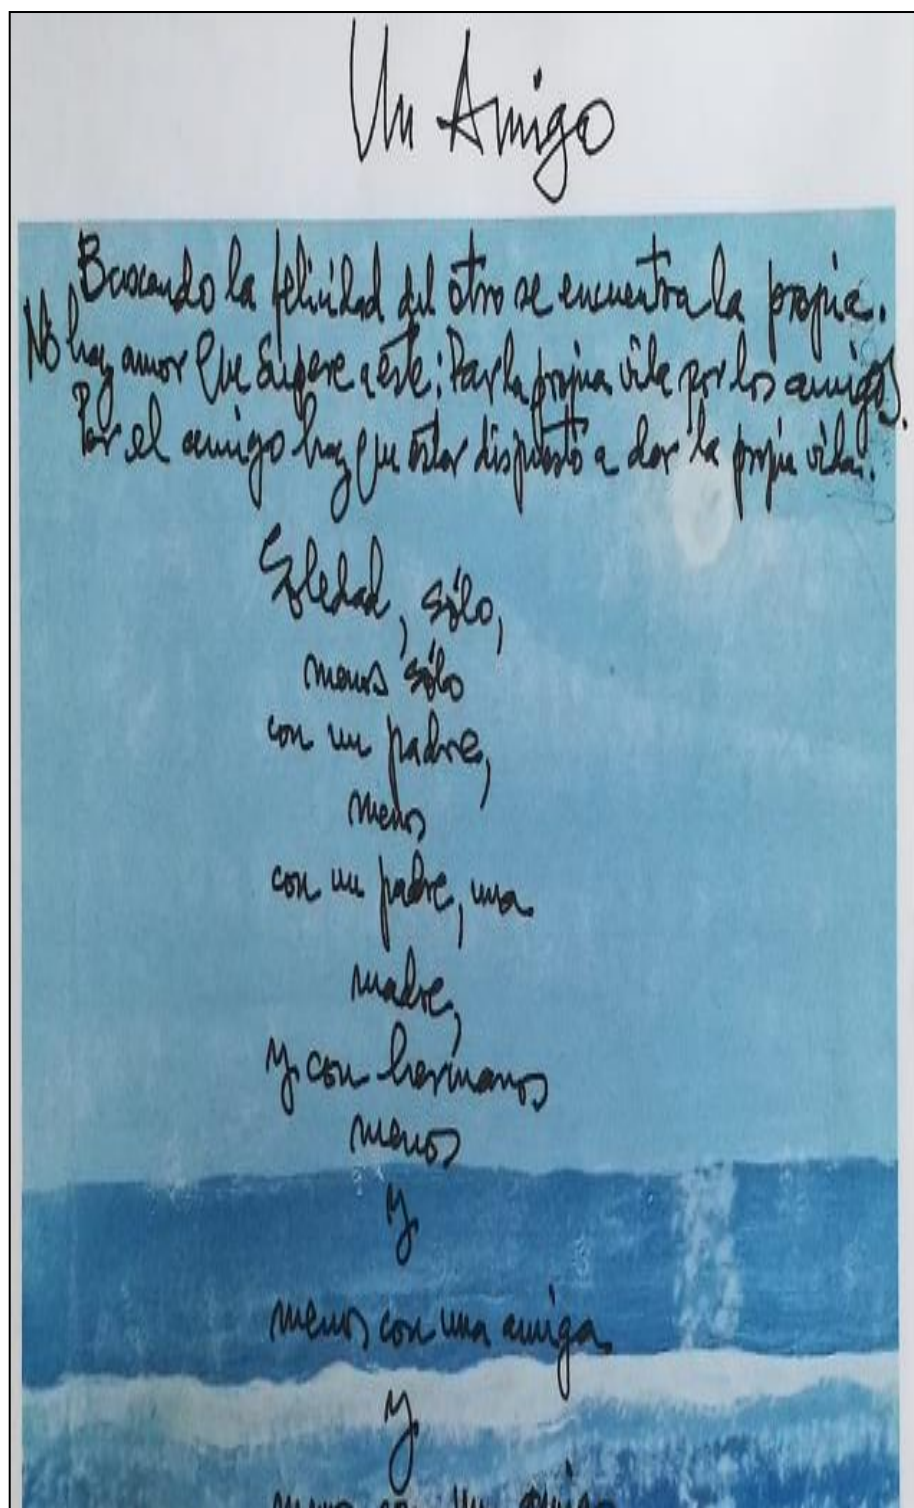 Un Amigo
Buscando la felicidad del otro se encuentra la propia.
No hay amor que supere a este: Dar la propia vida por los amigos.
Por el amigo hay que estar dispuesto a dar la propia vida.
Soledad, sólo,
menos sólo
con un padre,
menos
con un padre, una
madre,
y con hermanos
menos
y
menos con una amiga
y
menos con un amigo